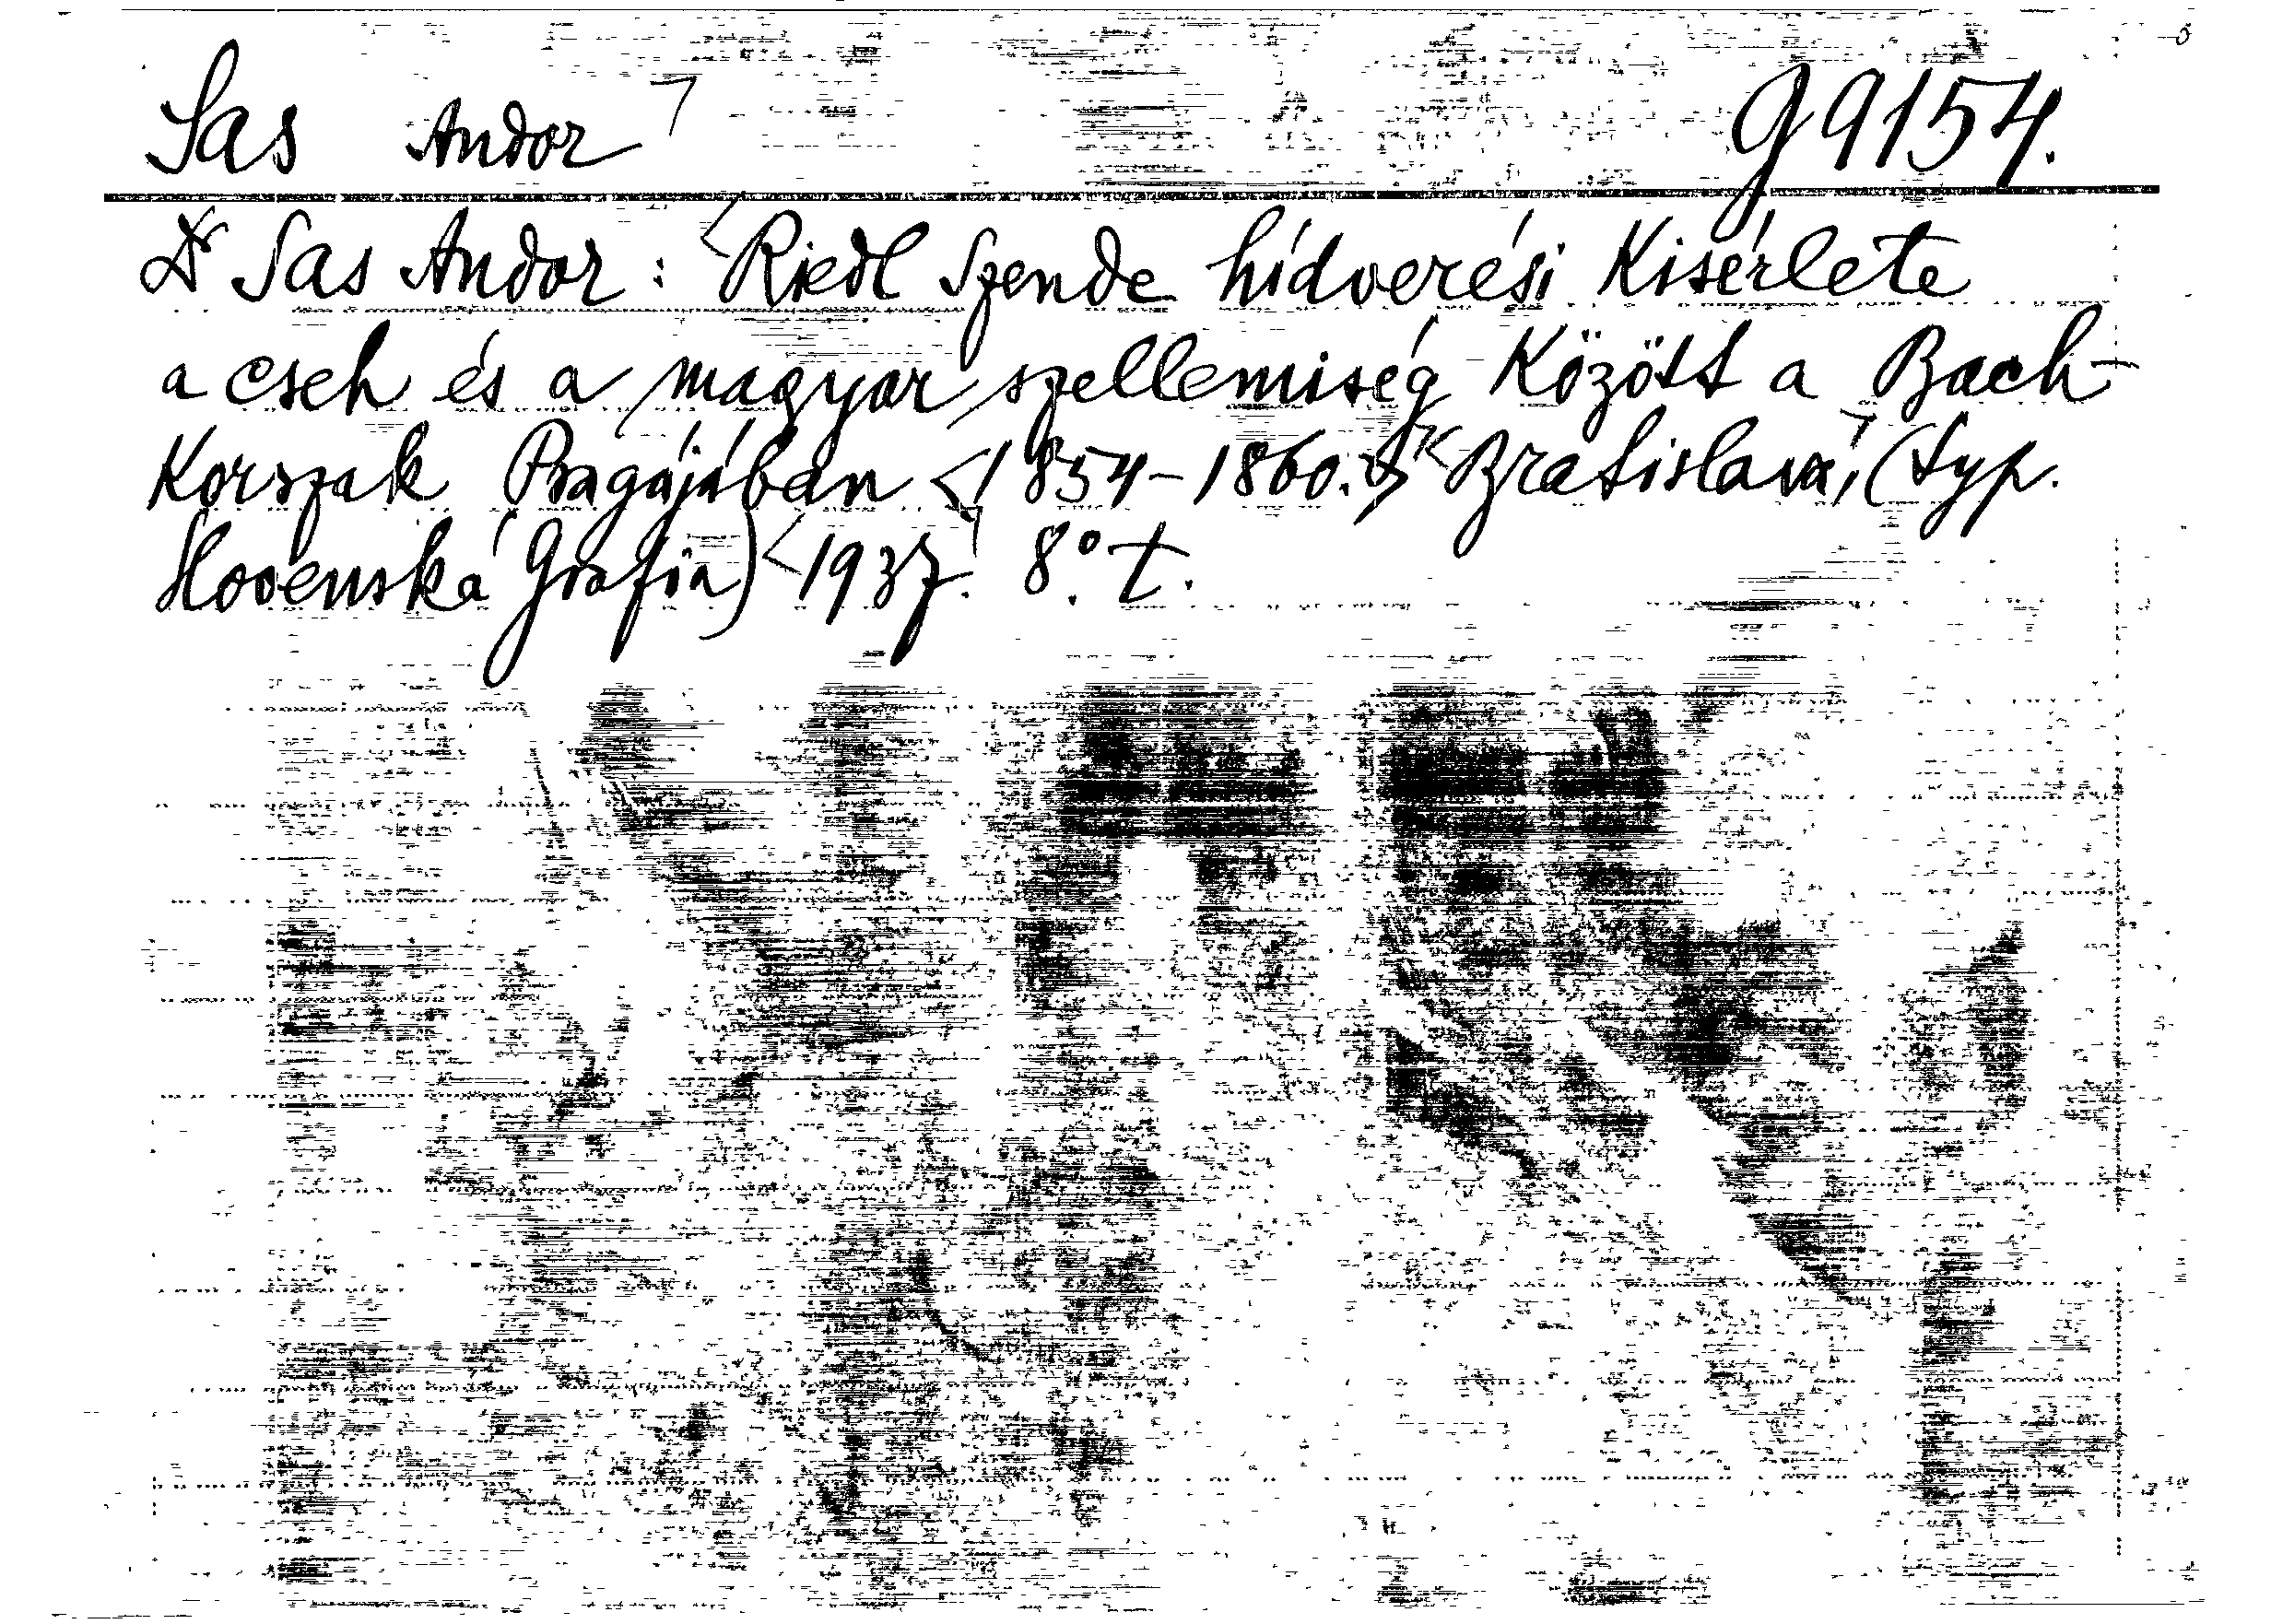 Sas Andor G 9154.
Dr Sas Andor: Riedl Szende hídverési Kisérlete
a cseh és a magyar szellemiség Között a Bach-
Korszak Prágájában <1854-1860.> Bratislava, (typ.
Slovenská Grafia) 1937. 8° t.